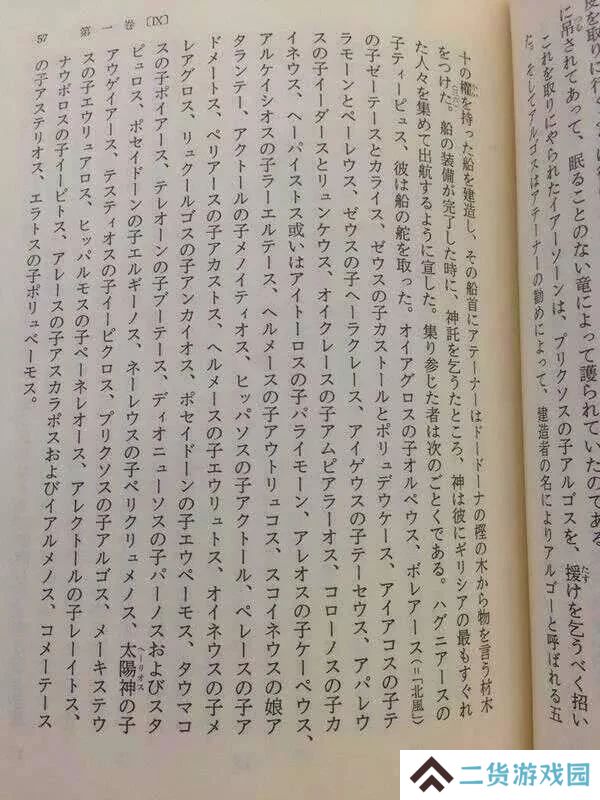 皮を取りに行
に吊されてあって、眠ることのない竜によって護られていたのである。
これを取りにやられたイアーソーンは、プリクソスの子アルゴスを、援けを乞うべく招い
た。そしてアルゴスはアテーナーの勧めによって、建造者の名によりアルゴーと呼ばれる五
十の櫂を持った船を建造し、その船首にアテーナーはドードーナの樫の木から物を言う材木
をつけた。船の装備が完了した時に、神託を乞うたところ、神は彼にギリシアの最もすぐれ
た人々を集めて出航するように宣した。集り参じた者は次のごとくである。ハグニアースの
子ティーピュス、彼は船の舵を取った。オイアグロスの子オルペウス、ボレアース(=「北風」)
の子ゼーテースとカライス、ゼウスの子カストールとポリュデウケース、アイアコスの子テ
ラモーンとペーレウス、ゼウスの子ヘーラクレース、アイゲウスの子テーセウス、アパレウ
スの子イーダースとリュンケウス、オイクレースの子アムピアラーオス、コローノスの子カ
イネウス、ヘーパイストス或いはアイトーロスの子パライモーン、アレオスの子ケーペウス、
アルケイシオスの子ラーエルテース、ヘルメースの子アウトリュコス、スコイネウスの娘ア
タランテー、アクトールの子メノイティオス、ヒッパソスの子アクトール、ペレースの子ア
ドメートス、ペリアースの子アカストス、ヘルメースの子エウリュトス、オイネウスの子メ
レアグロス、リュクールゴスの子アンカイオス、ポセイドーンの子エウペーモス、タウマコ
スの子ポイアース、テレオーンの子ブーテース、ディオニューソスの子パーノスおよびスタ
ピュロス、ポセイドーンの子エルギーノス、ネーレウスの子ペリクリュメノス、太陽神の子
アウゲイアース、テスティオスの子イーピクロス、プリクソスの子アルゴス、メーキステウ
スの子エウリュアロス、ヒッパルモスの子ペーネレオース、アレクトールの子レーイトス、
ナウボロスの子イーピトス、アレースの子アスカラポスおよびイアルメノス、コメーテース
の子アステリオス、エラトスの子ポリュペーモス。
第一巻〔IX〕
57
二货游戏园